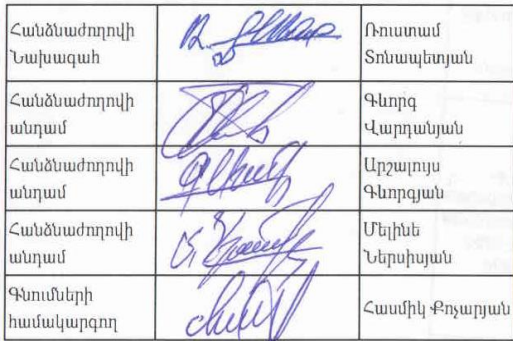 Հանձնաժողովի
Նախագահ
Ռուստամ
Տոնապետյան
Հանձնաժողովի
անդամ
Գևորգ
Վարդանյան
Հանձնաժողովի
անդամ
Արշալույս
Գևորգյան
Հանձնաժողովի
անդամ
Մելինե
Ներսիսյան
Գնումների
համակարգող
Հասմիկ Քոչարյան